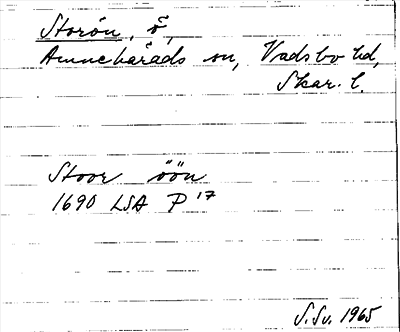 Storön, ö,
Amnehärads sn, Vadsbo hd,
Skar. l.
Stoor öön
1690 LSA P 17
S.Sv. 1965